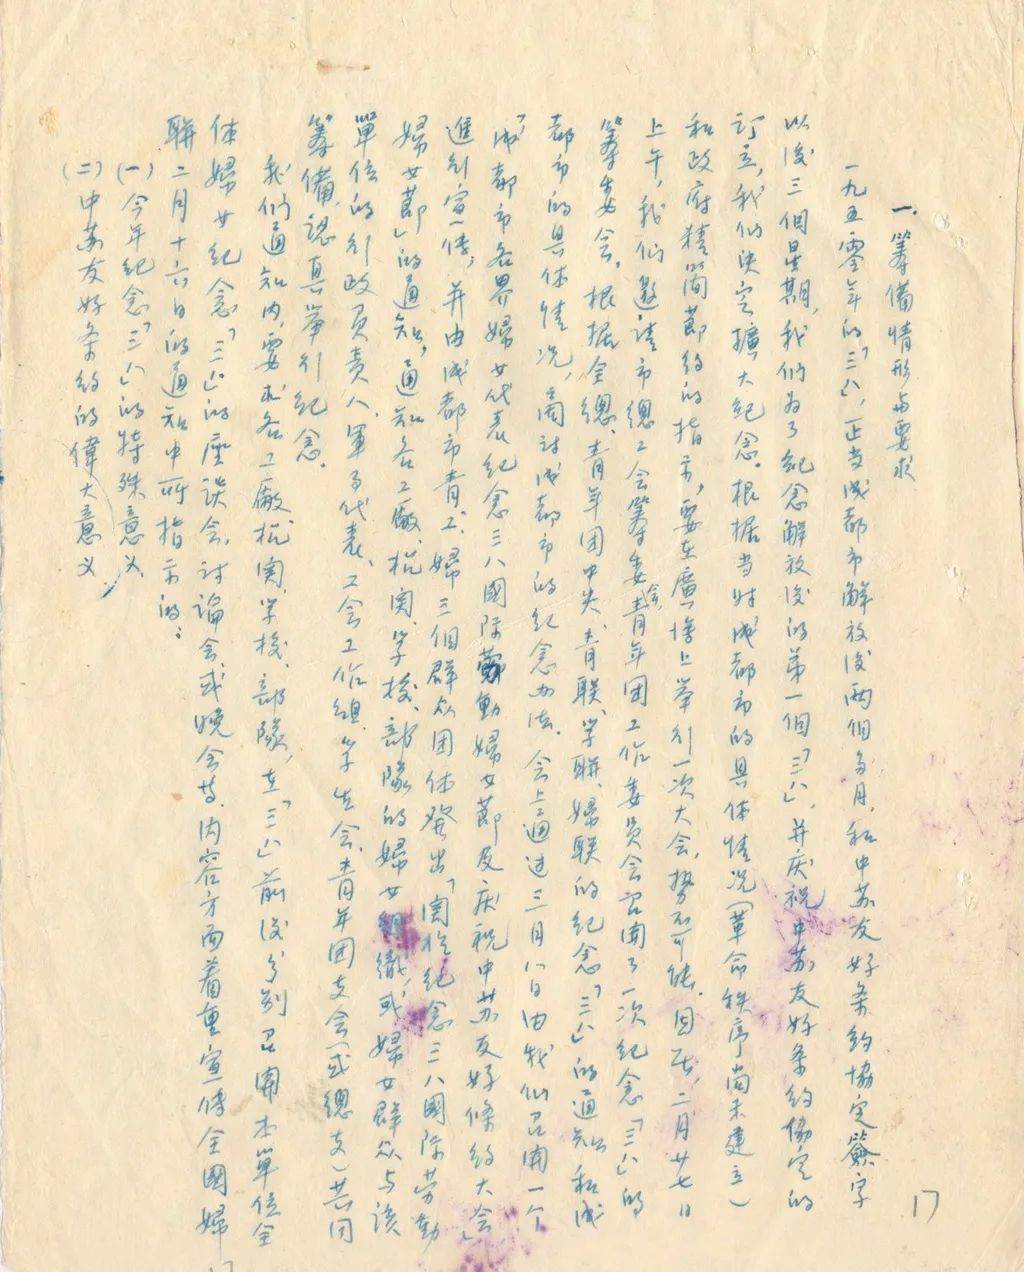 一、筹備情形与要求
一九五零年的「三八」，正当成都市解放後两個多月，和中苏友好条約協定簽字
以後三個星期，我们为了纪念解放後的第一個「三八」，并庆祝中苏友好条約協定的
訂立，我们决定擴大纪念。根据当时成都市的具体情况（革命秩序尚未建立）
和政府精簡節約的指示，要在廣場上举行一次大会，势不可能。因此，二月廿七日
上午，我们邀請市總工会筹委会，青年团工作委員会召開了一次纪念「三八」的
筹委会。根据全總、青年团中央、青联、学联、婦联的纪念「三八」的通知和成
都市的具体情况，商討成都市的纪念办法。会上通过三月八日由我们召開一个
「成都市各界婦女代表纪念三八國际劳動婦女節及庆祝中苏友好條約大会」
進行宣传，并由成都市青、工、婦三個群众团体發出「関於纪念三八國际劳動
婦女節」的通知，通知各工廠、机関、学校、部隊的婦女組織，或婦女群众与該
單位的行政負责人、軍事代表、工会工作組、学生会、青年团支会（或總支）共同
筹備，認真举行纪念。
我们通知内，要求各工廠机関、学校、部隊，在「三八」前後分别召開本單位全
体婦女纪念「三八」的座谈会，討論会或晚会等，内容方面着重宣传全國婦
联二月十六日的通知中所指示的：
（一）今年纪念「三八」的特殊意义
（二）中苏友好条約的偉大意义
17